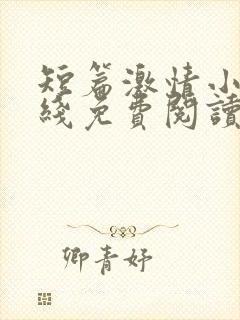 短篇激情小
綫免費閱讀
卿青妤